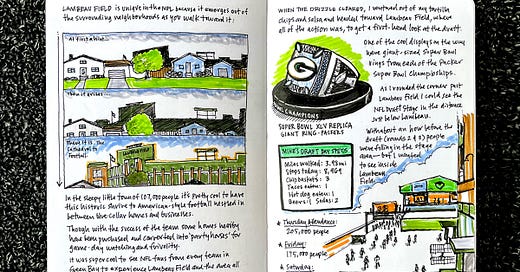 LAMBEAU FIELD is unique in the NFL because it emerges out of
the surrounding neighborhoods as you walk toward it:
At first a hint...
Then it grows
There it is. The
Cathedral to
Football
In the sleepy little town of 107,000 people it's pretty cool to have
this historic shrine to American-style football nestled in
between blue collar homes and businesses.
Though with the success of the team some homes nearby
have been purchased and converted into "party houses" for
game-day watching and frivolity.
It was super cool to see NFL fans from every team in
Green Bay to experience Lambeau Field and the area all
WHEN THE DRIZZLE CLEARED, I
chips and salsa and headed toward Lambeau Field, where
all of the action was, to get a first-hand look at the draft.
One of the cool displays on the way
were giant-sized Super Bowl
rings from each of the Packer
Super Bowl Championships.
CHAMPIONS
SUPER BOWL XLV REPLICA
GIANT RING - PACKERS
As I rounded the corner past
Lambeau Field I could see the
NFL Draft Stage in the distance
just below Lambeau.
MIKE'S DRAFT DAY STATS
Miles walked: 3.95mi
Steps today: 8,969
Chip baskets: 3
Tacos eaten: 1
Hot dog eaten: 1
Beers: 1 Sodas: 2
With about an hour before the
draft (rounds 2 & 3) people
were filling in the stage
area — but I wanted
to see inside
Lambeau
Field.
Thursday Attendance:
205,000 people
Friday:
175,000 people
Saturday: